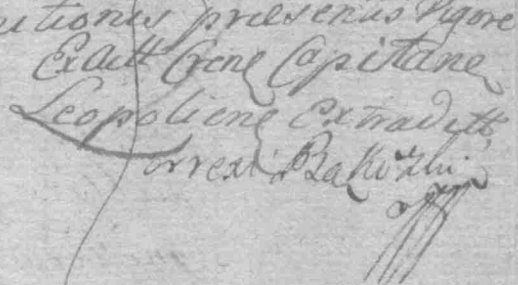 utionis præsentis Vigore
Ex Actt Crens Capitane
Leopoliens Extraditt
Correxit Bako